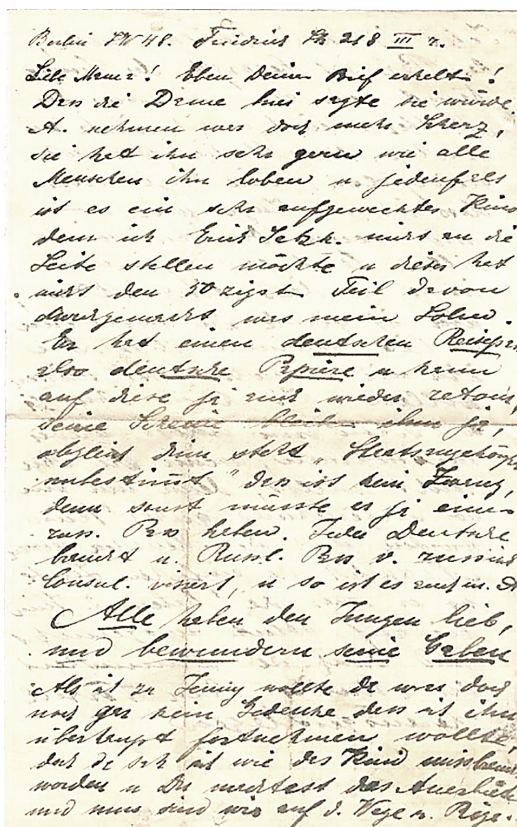 Berlin SW 48. Friedrich Str 218 III r.
Liebe Mama! Eben Deinen Brief erhalten!
Dass die Dame hier sagte sie würde
A. nehmen war doch mehr Scherz,
sie hat ihn sehr gern wie alle
Menschen ihn loben u. jedenfalls
ist es ein sehr aufgewecktes Kind
dem ich Erich nicht an die
Seite stellen möchte u dieser hat
nicht den 50zigst Teil davon
durchgemacht was mein Sohn.
Er hat einen deutschen Reisepass
also deutsche Papiere u kann
auf diese ja auch wieder retour,
seine bleibt ihm ja,
obgleich drin steht "Staatsangehörigk
unbestimmt" das ist kein
denn sonst müsste er ja einen
russ. Pass haben. Jeder Deutsche
braucht n. Russl. Pass v. russisch
Consul visiert, u so ist es auch m.
Alle haben den Jungen lieb,
und bewundern seine Gaben
Als ich zu Jenny wollte da war doch
noch gar kein Gedanke dass ich ihn
überhaupt fortnehmen wollte,
da sah ich wie das Kind
worden u Du machtest das
und nun sind wir auf d. Wege n. Riga.